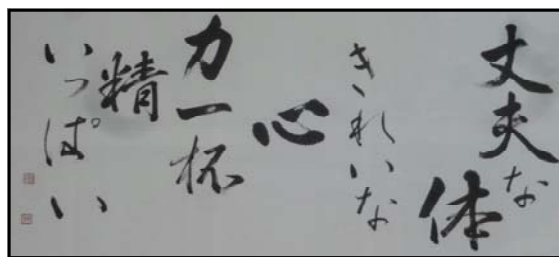 丈夫な
体
きれいな
心
力一杯
精
いっぱい